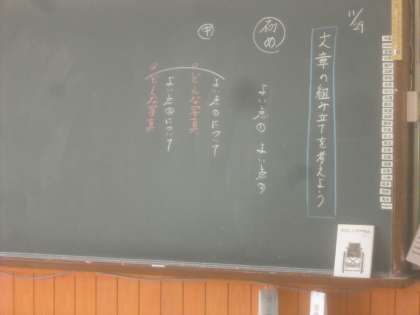 11/29
文章の組み立てを考えよう
初め
よい点① よい点②
中
よい点①について
どんな写真
よい点②について
どんな写真